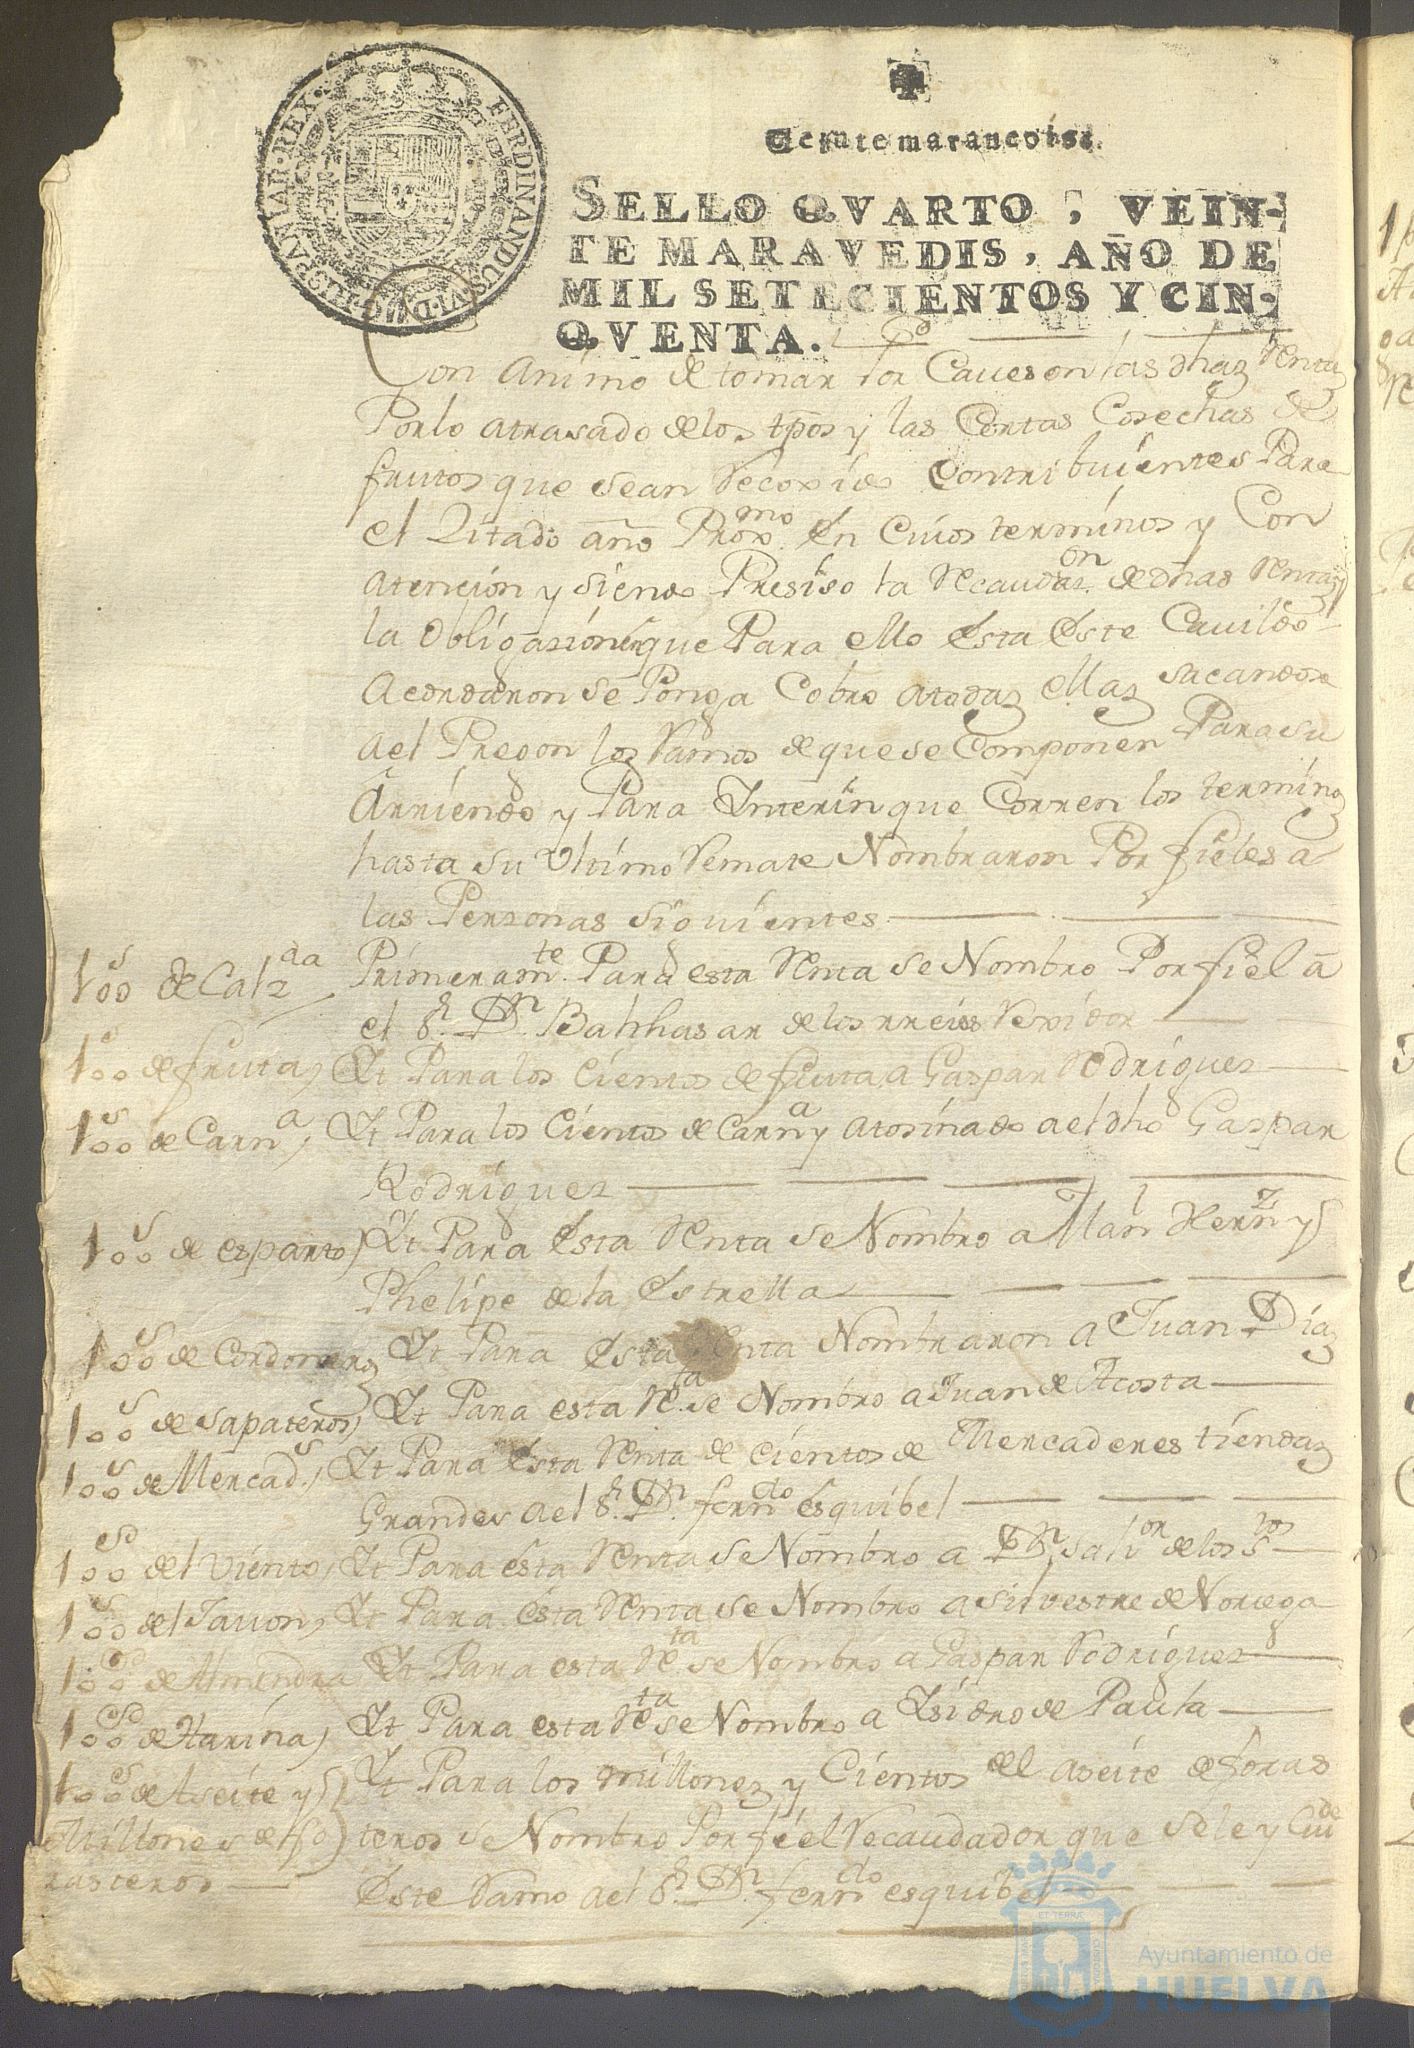 FERDINANDUS.VI.D.G.HISPANIAR.REX
Veinte maravedis.
SELLO QVARTO, VEIN-
TE MARAVEDIS, AÑO DE
MIL SETECIENTOS Y CIN-
QVENTA.
Con animo de tomar por Caueson las dhaz Rentaz
Por lo atrasado de los tpõs y las Cortas Cosechas de
frutos que sean Recoxido Contribuientes Para
el Zitado año Proxmo. En Cuios terminos y Con
atencion y siendo Presiso la Recaudaon. de dhas Rentaz y
la Obligazion que Para ello Esta Este Cauildo
Acordaron se Ponga Cobro atodaz ellaz sacandose
ael Pregon los Ramos de que se Componen Para su
Arriendo y Para Ynterin que Corren los terminoz
hasta su Vltimo Remate Nombraron Por fieles a
las Personas siguientes
100s de Calzda Primeramte. Para esta Renta se Nombro Por fiel a
el Sr. Dn. Balthasar de los rreies Rexidor
100s de fruta, Yt Para los Cientos de fruta a Gaspar Rodriguez
100s de Carna, Yt Para los Cientos de Carna y atosinado ael dho Gaspar
Rodriguez
100s de esparto, Yt Para Esta Renta se Nombro a Manl Hernz y
Phelipe de la Estrella
100s de Cordoneroz Yt Para Esta Renta Nombraron a Juan Diaz
100s de sapateros, Yt Para esta Rta. se Nombro a Juan de Acosta
100s de Mercads., Yt Para Esta Renta de Cientos de Mercaderes tiendaz
Grandes ael Sr. Dn. fernndo esquibel
100s del Viento, Yt Para esta Renta se Nombro a Dn. Salvor de los Stos
100s del Jauon, Yt Para esta Renta se Nombro a silvestre de Noriega
100s de Almendra Yt Para esta Rta. se Nombro a Gaspar Rodriguez
100s de Harina, Yt Para esta Rta se Nombro a Ysidro de Paula
100s de Aseite y Yt Para los millonez y Cientos del aseite de foras
Millones de fo teros se Nombro Por fiel Recaudador que sele y Cuide
rasteros Este Ramo ael Sr. Dn. fernndo esquibel
Ayuntamiento de
HUELVA